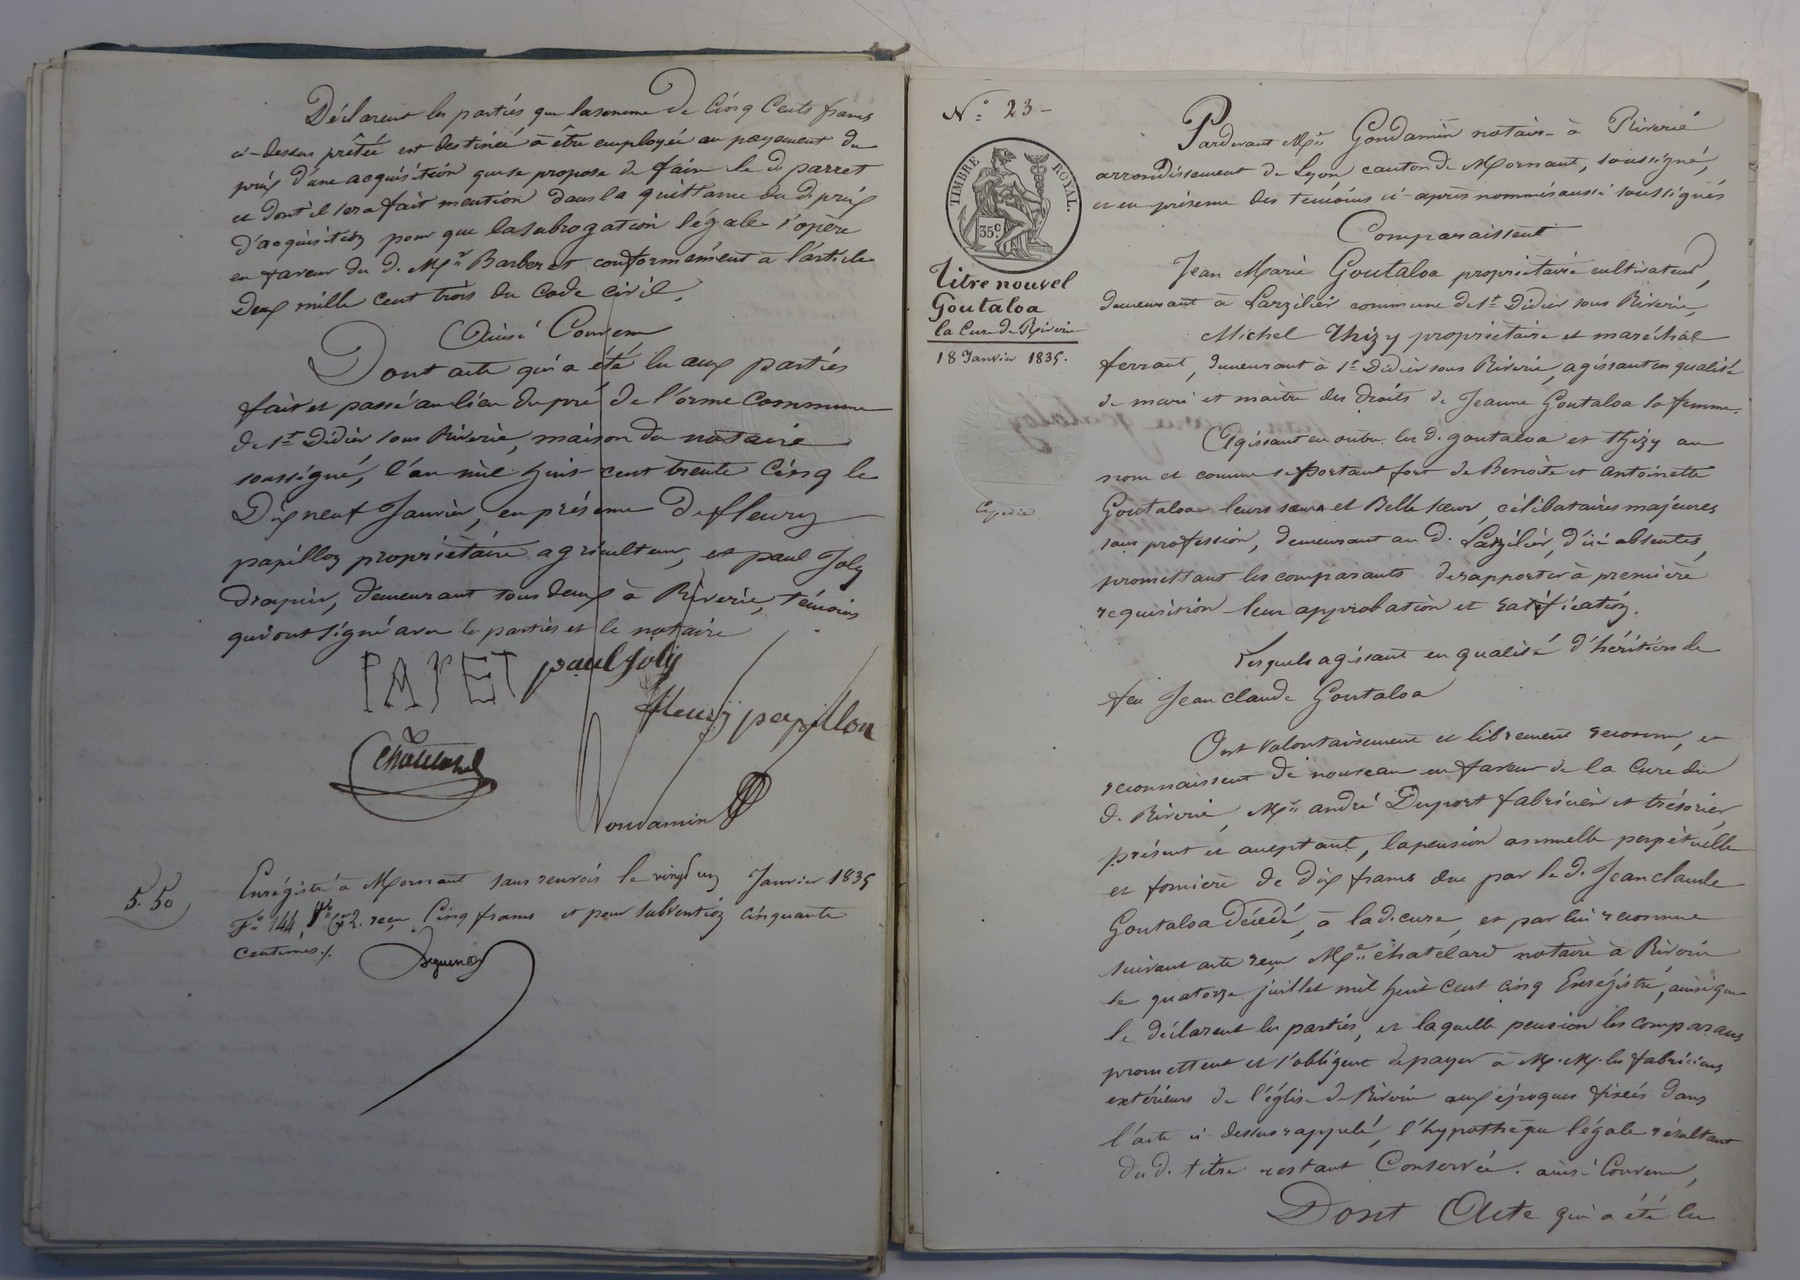 Déclarent les parties que la somme de Cinq Cents francs
ci-dessus prêtée est destinée à être employée au payement du
prix d'une acquisition que se propose de faire le d. parret
et dont il sera fait mention dans la quittance du d. prix
d'acquisition pour que la subrogation légale s'opère
en faveur du d. Mr. Barberet conformément à l'article
Deux mille cent trois du Code civil.
Ainsi Convenu
Dont acte qui a été lu aux parties
fait et passé au lieu du pré de l'orme Commune
de st. Didier sous Riverie, maison du notaire
soussigné, l'an mil huit cent trente Cinq le
Dix neuf Janvier, en présence de fleury
papillon propriétaire agriculteur, et paul Joly
drapier, demeurant tous deux à Riverie, témoins
qui ont signé avec les parties et le notaire
PAYET paul Joly
fleury papillon
Chatelard
Gondamin
5. 50
Enrégistré à Mornant sans renvois le vingt un Janvier 1835
Fo. 144, Vo. C. 2. reçu Cinq francs et pour subvention cinquante
centimes./.
No. 23 –
TIMBRE ROYAL.
35 c.
Titre nouvel
Goutaloa
la Cure de Riverie
18 Janvier 1835.
Expédié
Pardevant Me. Gondamin notaire à Riverie
arrondissement de Lyon canton de Mornant, soussigné,
et en présence des témoins ci-après nommés aussi soussignés
Comparaissent
Jean Marie Goutaloa propriétaire cultivateur,
demeurant à Larzilier commune de st. Didier sous Riverie,
Michel Thizy propriétaire et maréchal
ferrant, demeurant à st. Didier sous Riverie, agissant en qualité
de mari et maître des droits de Jeanne Goutaloa sa femme.
Agissant en outre les d. goutaloa et thizy au
nom et comme se portant fort de Benoite et Antoinette
Goutaloa leurs sœurs et Belle sœur, célibataires majeures
sans profession, demeurant au d. Larzilier, d'ici absentes,
promettant les comparants de rapporter à première
requisition leur approbation et ratification.
Lesquels agissant en qualité d'héritiers de
feu Jean claude Goutaloa
Ont volontairement et librement reconnu, et
reconnaissent de nouveau en faveur de la Cure du
d. Riverie, Mr. andré Duport fabricien et trésorier,
présent et acceptant, la pension annuelle perpétuelle
et foncière de dix francs due par le d. Jean claude
Goutaloa décédé, à la d. cure, et par lui reconnue
suivant acte reçu Me. Chatelard notaire à Riverie
le quatorze juillet mil huit cent cinq Enrégistré, ainsi que
le déclarent les parties, et laquelle pension les comparans
promettent et s'obligent de payer à M. M. les fabriciens
extérieurs de l'église de Riverie aux époques fixées dans
l'acte ci-dessus rappelé, l'hypothèque légale résultant
du d. titre restant Conservée. ainsi Convenu,
Dont Acte qui a été lu